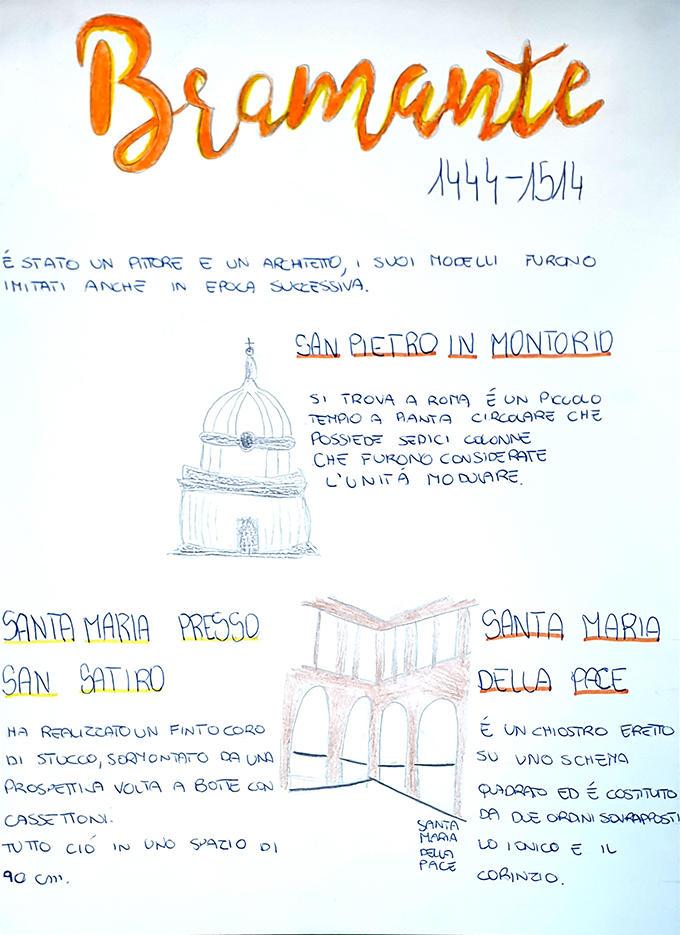 Bramante
1444-1514
É STATO UN PITTORE E UN ARCHITETTO, I SUOI MODELLI FURONO
IMITATI ANCHE IN EPOCA SUCCESSIVA.
SAN PIETRO IN MONTORIO
SI TROVA A ROMA É UN PICCOLO
TEMPIO A PIANTA CIRCOLARE CHE
POSSIEDE SEDICI COLONNE
CHE FURONO CONSIDERATE
L'UNITÁ MODULARE.
SANTA MARIA PRESSO
SAN SATIRO
HA REALIZZATO UN FINTO CORO
DI STUCCO, SORMONTATO DA UNA
PROSPETTICA VOLTA A BOTTE CON
CASSETTONI.
TUTTO CIÓ IN UNO SPAZIO DI
90 cm.
SANTA
MARIA
DELLA
PACE
SANTA MARIA
DELLA PACE
É UN CHIOSTRO ERETTO
SU UNO SCHEMA
QUADRATO ED É COSTITUTO
DA DUE ORDINI SOVRAPPOSTI
LO IONICO E IL
CORINZIO.